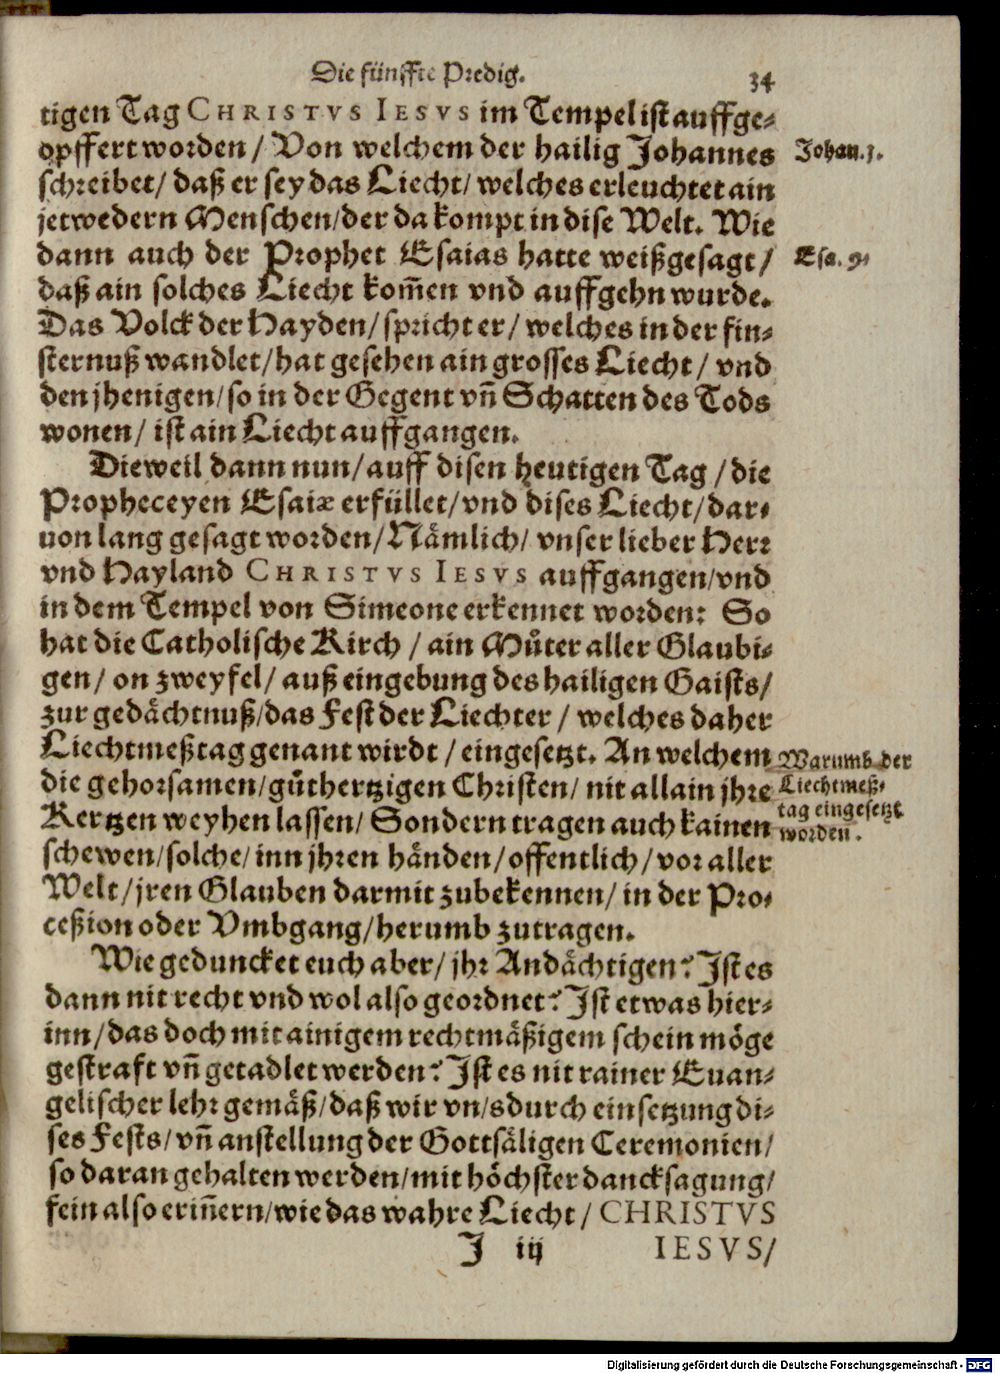 Die fünffte Predig. 34
tigen Tag CHRISTVS IESVS im Tempel ist auffge-
opffert worden / Von welchem der hailig Johannes
Johan. 1.
schreibet / daß er sey das Liecht / welches erleuchtet ain
jetwedern Menschen / der da kompt in dise Welt. Wie
dann auch der Prophet Esaias hatte weißgesagt /
Esa. 9.
daß ain solches Liecht kom̄en vnd auffgehn wurde.
Das Volck der Hayden / spricht er / welches in der fin-
sternuß wandlet / hat gesehen ain grosses Liecht / vnd
den jhenigen / so in der Gegent vn̄ Schatten des Tods
wonen / ist ain Liecht auffgangen.
Dieweil dann nun / auff disen heutigen Tag / die
Propheceyen Esaiæ erfüllet / vnd dises Liecht / dar-
uon lang gesagt worden / Nämlich / vnser lieber Herr
vnd Hayland CHRISTVS IESVS auffgangen / vnd
in dem Tempel von Simeone erkennet worden: So
hat die Catholische Kirch / ain Můter aller Glaubi-
gen / on zweyfel / auß eingebung des hailigen Gaists /
zur gedächtnuß / das Fest der Liechter / welches daher
Liechtmeßtag genant wirdt / eingesetzt. An welchem
Warumb der
Liechtmeß-
tag eingesetzt
worden.
die gehorsamen / gůthertzigen Christen / nit allain jhre
Kertzen weyhen lassen / Sondern tragen auch kainen
schewen / solche / inn jhren händen / offentlich / vor aller
Welt / jren Glauben darmit zubekennen / in der Pro-
ceßion oder Vmbgang / herumb zutragen.
Wie geduncket euch aber / jhr Andächtigen? Ist es
dann nit recht vnd wol also geordnet? Ist etwas hier-
inn / das doch mit ainigem rechtmäßigem schein möge
gestraft vn̄ getadlet werden? Ist es nit rainer Euan-
gelischer lehr gemäß / daß wir vn / sdurch einsetzung di-
ses Fests / vn̄ anstellung der Gottsäligen Ceremonien /
so daran gehalten werden / mit höchster dancksagung /
fein also erin̄ern / wie das wahre Liecht / CHRISTVS
J iij IESVS /
Digitalisierung gefördert durch die Deutsche Forschungsgemeinschaft - DFG